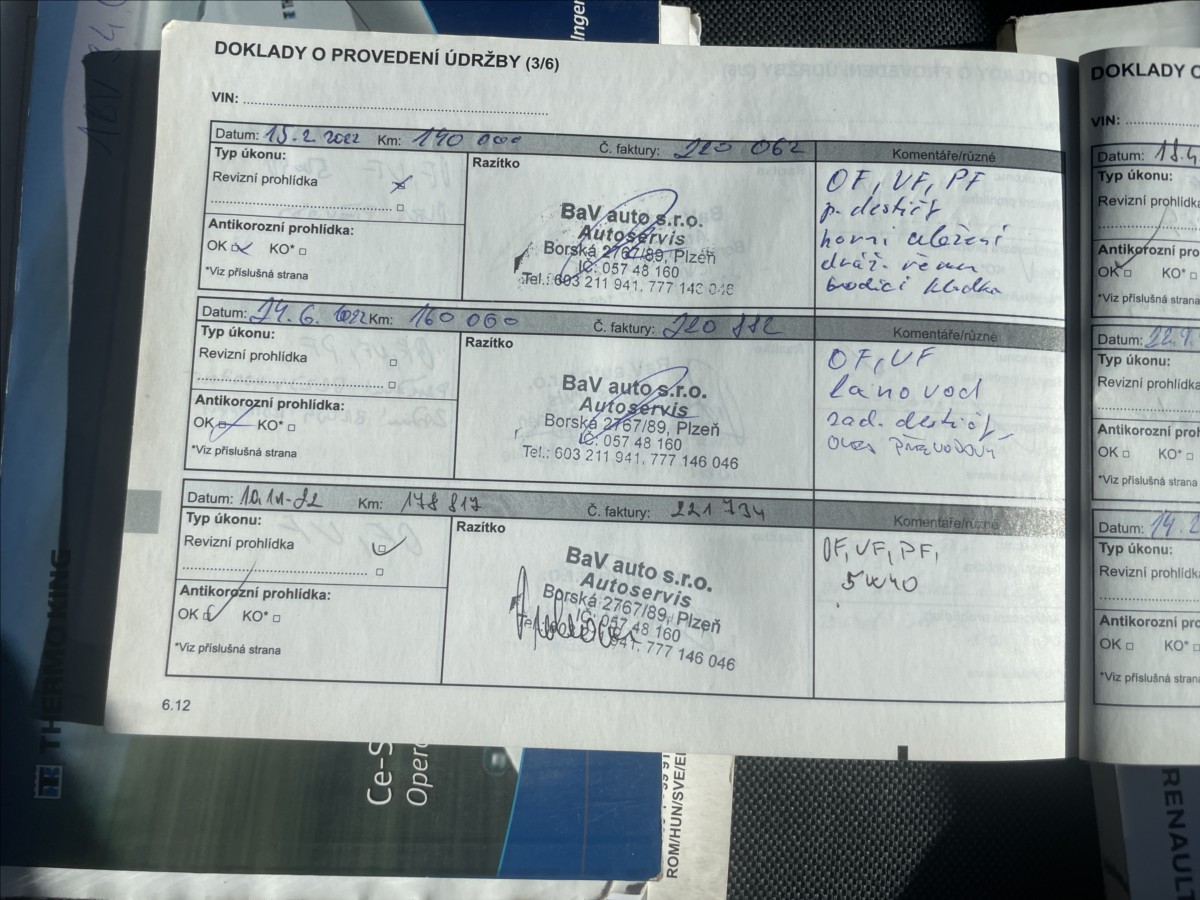 Inger
DOKLADY O PROVEDENÍ ÚDRŽBY (3/6)
VIN:
Datum: 15.2.2022 Km: 190 000 Č. faktury: 220 062 Komentáře/různé
Typ úkonu:
Revizní prohlídka
Antikorozní prohlídka:
OK KO*
*Viz příslušná strana
Razítko
BaV auto s.r.o.
Autoservis
Borská 2767/89, Plzeň
IČ: 057 48 160
Tel.: 603 211 941, 777 146 046
OF, VF, PF
p. destičk
horní uložení
dráž. řemen
vodící kladka
Datum: 14.6.2022 Km: 160 000 Č. faktury: 220 882 Komentáře/různé
Typ úkonu:
Revizní prohlídka
Antikorozní prohlídka:
OK KO*
*Viz příslušná strana
Razítko
BaV auto s.r.o.
Autoservis
Borská 2767/89, Plzeň
IČ: 057 48 160
Tel.: 603 211 941, 777 146 046
OF, VF
lanovod
zad. destičk
OLEJ PŘEVODOVÝ
Datum: 10.11-22 Km: 178 817 Č. faktury: 221 734 Komentáře/různé
Typ úkonu:
Revizní prohlídka
Antikorozní prohlídka:
OK KO*
*Viz příslušná strana
Razítko
BaV auto s.r.o.
Autoservis
Borská 2767/89, Plzeň
IČ: 057 48 160
941, 777 146 046
OF, VF, PF,
5W40
6.12
DOKLADY O
VIN:
Datum: 18.4
Typ úkonu:
Revizní prohlídk
Antikorozní proh
OK KO*
*Viz příslušná strana
Datum: 22.9.
Typ úkonu:
Revizní prohlídka
Antikorozní proh
OK KO*
*Viz příslušná strana
Datum: 14.2
Typ úkonu:
Revizní prohlídka
Antikorozní pro
OK KO*
*Viz příslušná strana
THERMO KING
Ce-S
Opera
ROM/HUN/SVE/E
RENAULT